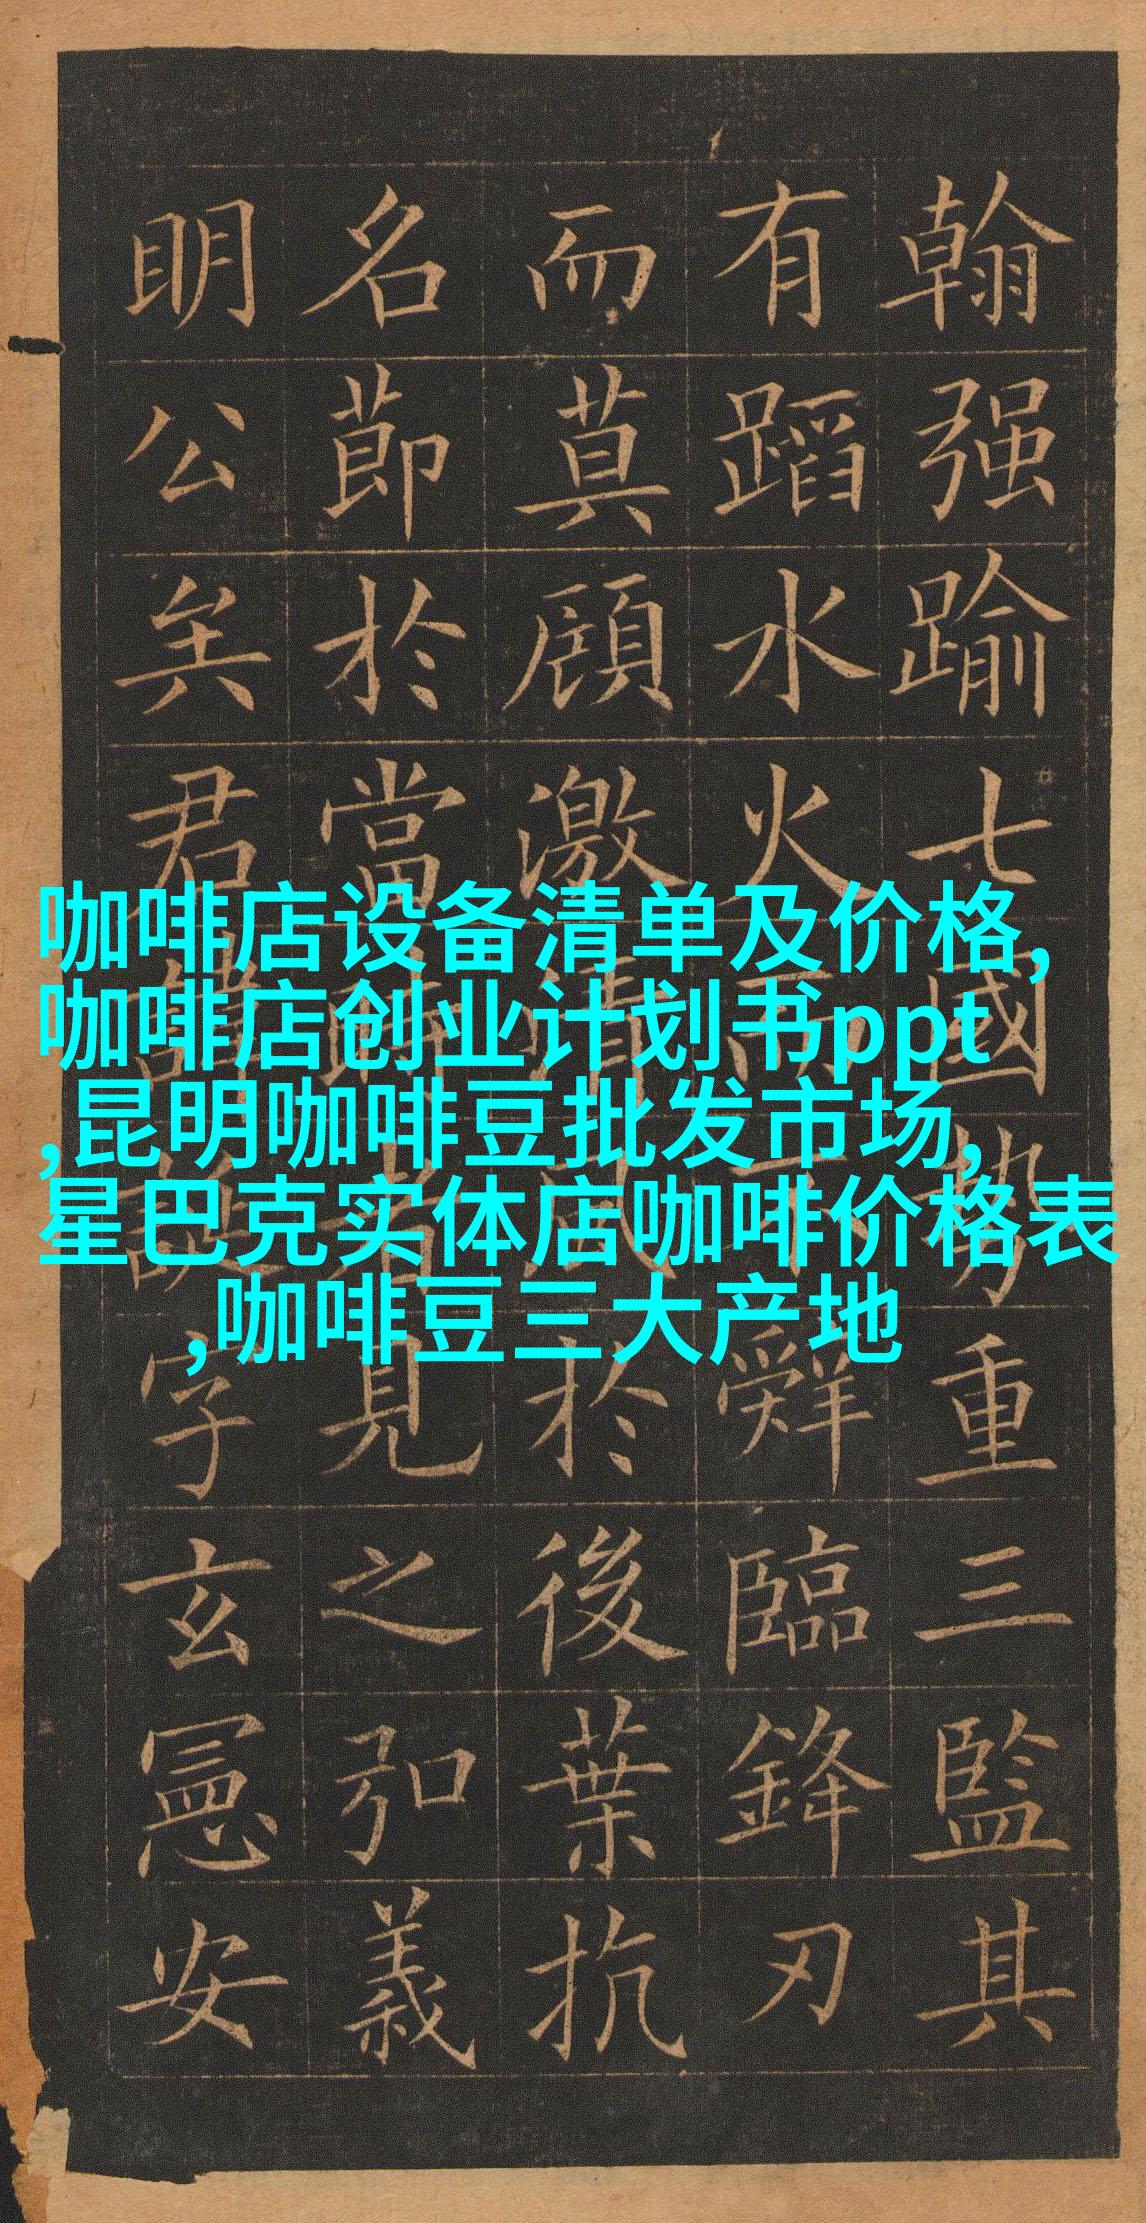 咖啡店设备清单及价格,
咖啡店创业计划书ppt
,昆明咖啡豆批发市场,
星巴克实体店咖啡价格表
,咖啡豆三大产地
翰强踰七國勢重三監其
有蹈水火而不辤臨鋒刃
而莫顧激清風於後葉抗
名節於當時者見之弘義
明公矣君諱誕字玄憲安